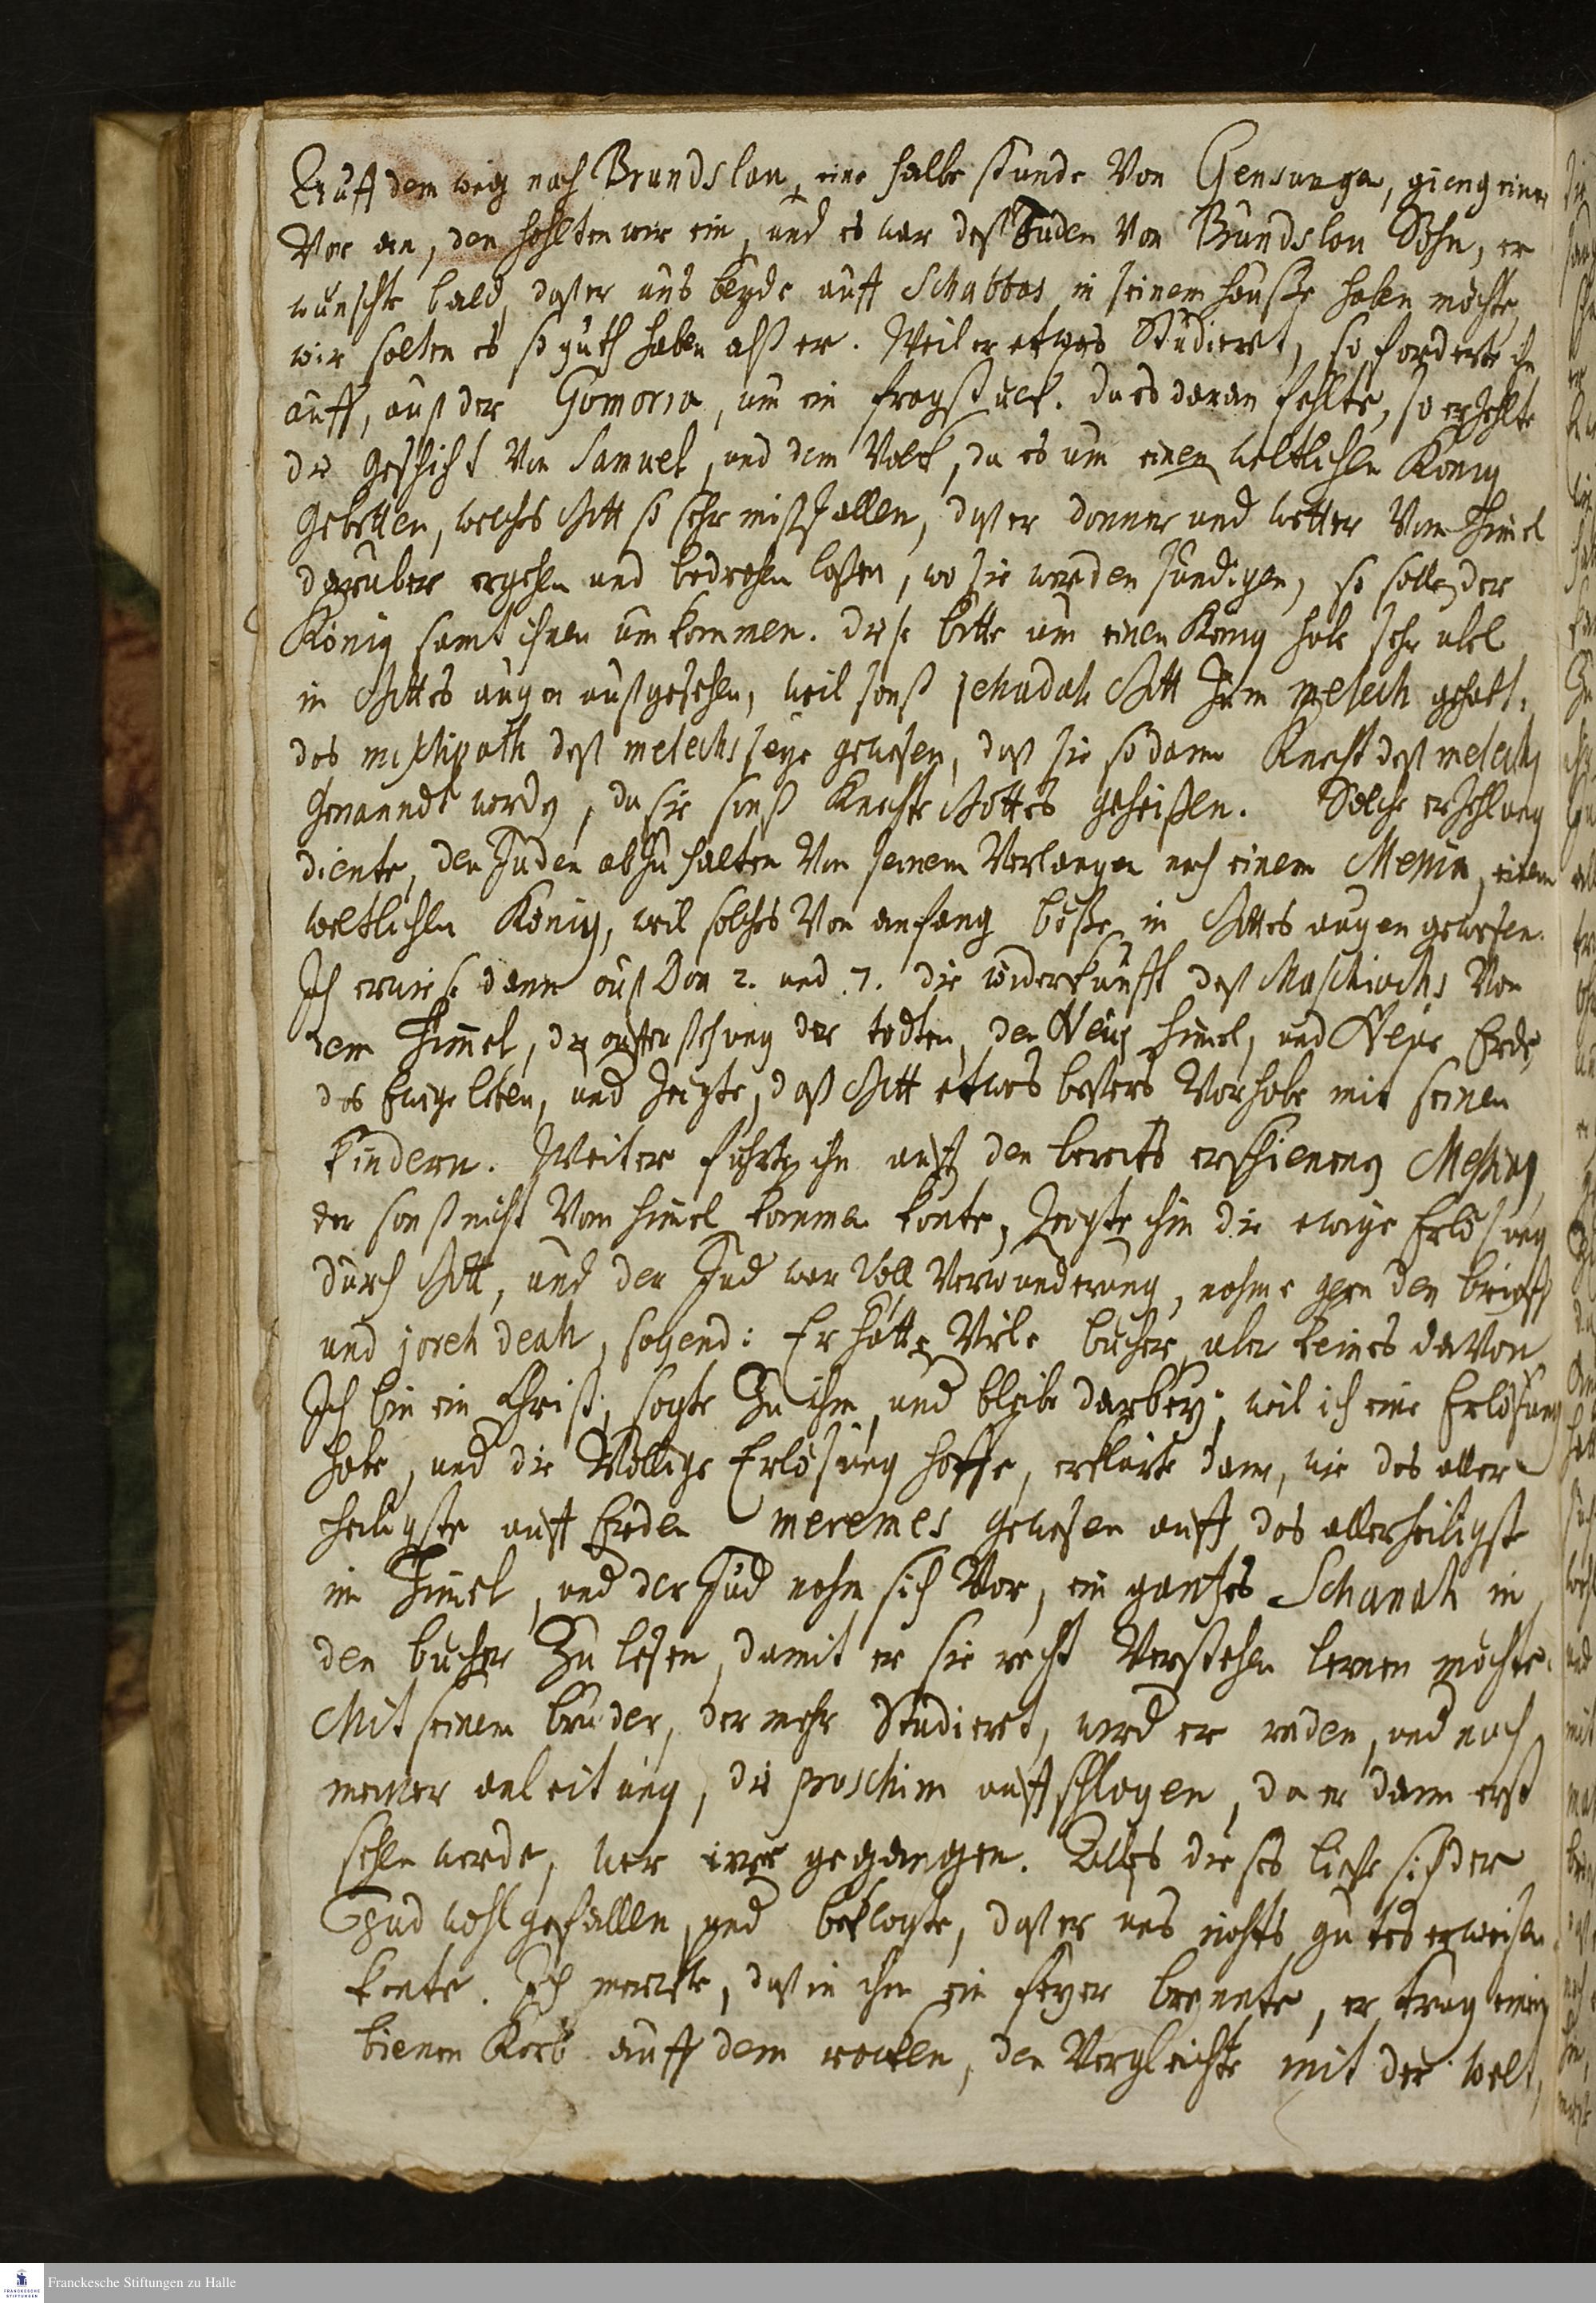 Auff dem weg nach Brundslau, eine halbe stunde von Gensunga, gieng einer
vor an, den hohlten wir ein, und es war deß Juden von Brundslau Sohn, er
wunschte bald, daß er uns beyde auff Schabbas in seinem hauße haben möchte,
wir solten es so guth haben alß er. Weil er etwas Studiert, so forderte ihn
auff, auß der Gomora, um ein fragstuck. da es daran fehlte, so erzehlte
die geschicht von Samuel, und dem Volck, da es um einen weltlichen König
gebetten, welches Gott so sehr mißfallen, daß er donner und wetter vom himel
daruber ergehen und bedrohen laßen, wo sie werden sundigen, so solle der
König samt ihnen umkommen. diese bitte um einen König habe sehr ubel
in Gottes augen außgesehen, weil sonst jehudah Gott zum melech gehabt.
das mischpath deß melechs seye gewesen, daß sie sodann Knecht deß melechs
genandt worden, da sie sonst Knechte Gottes geheißen. Solche erzehlung
diente, den Juden abzuhalten von seinem Verlangen nach einem Messia, einem
weltlichen König, weil solches von anfang böße in Gottes augen gewesen.
Ich erwieße dann auß Dan 2. und 7. die widerkunfft deß Maschiachs von
dem Himmel, die aufferstehung der todten, den Neuen himel, und Neue Erde,
das Ewige leben, und zeigte, daß Gott etwas beßers vorhabe mit seinen
kindern. Weiter fuhrte ihn auff den bereits erschienenen Messias,
der sonst nicht vom himel kommen konte, zeigte ihm die ewige Erlösung
durch Gott, und der Jud war voll verwunderung, nahme gern den brieff
und joreh deah, sagend: Er hätte viele bucher, aber keines davon
Ich bin ein Christ, sagte zu ihm, und bleibe darbey; weil ich eine Erlösung
habe, und die völlige Erlösung hoffe, erklärte dann, wie das aller
heiligste auff Erden meremes gewesen auff das allerheiligste
im Himel, und der Jud nahm sich vor, ein gantzes Schanah in
den bucher zu lesen, damit er sie recht verstehen lernen möchte.
Mit seinem bruder, der mehr Studieret, werd er reden, und nach
meiner anleitung, die proschim auffschlagen, da er dann erst
sehen werde, wer irre gegangen. Alles dieses ließe sich der
Jud wohl gefallen, und beklagte, daß er uns nichts gutes erweisen
konte. Ich merckte, daß in ihm ein feyer brennte, er trug einen
bienen Korb auff dem rucken, den vergleichte mit der welt,
Franckesche Stiftungen zu Halle